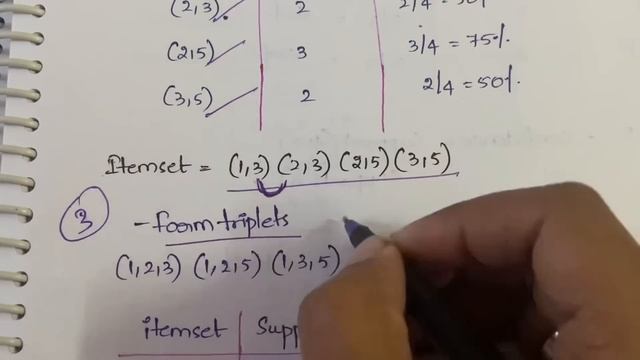 (2,3) 2 2/4 = 50%
(2,5) 3 3/4 = 75%.
(3,5) 2 2/4 = 50%.
Itemset = (1,3) (2,3) (2,5) (3,5)
3 - foam triplets
(1,2,3) (1,2,5) (1,3,5)
itemset Supp